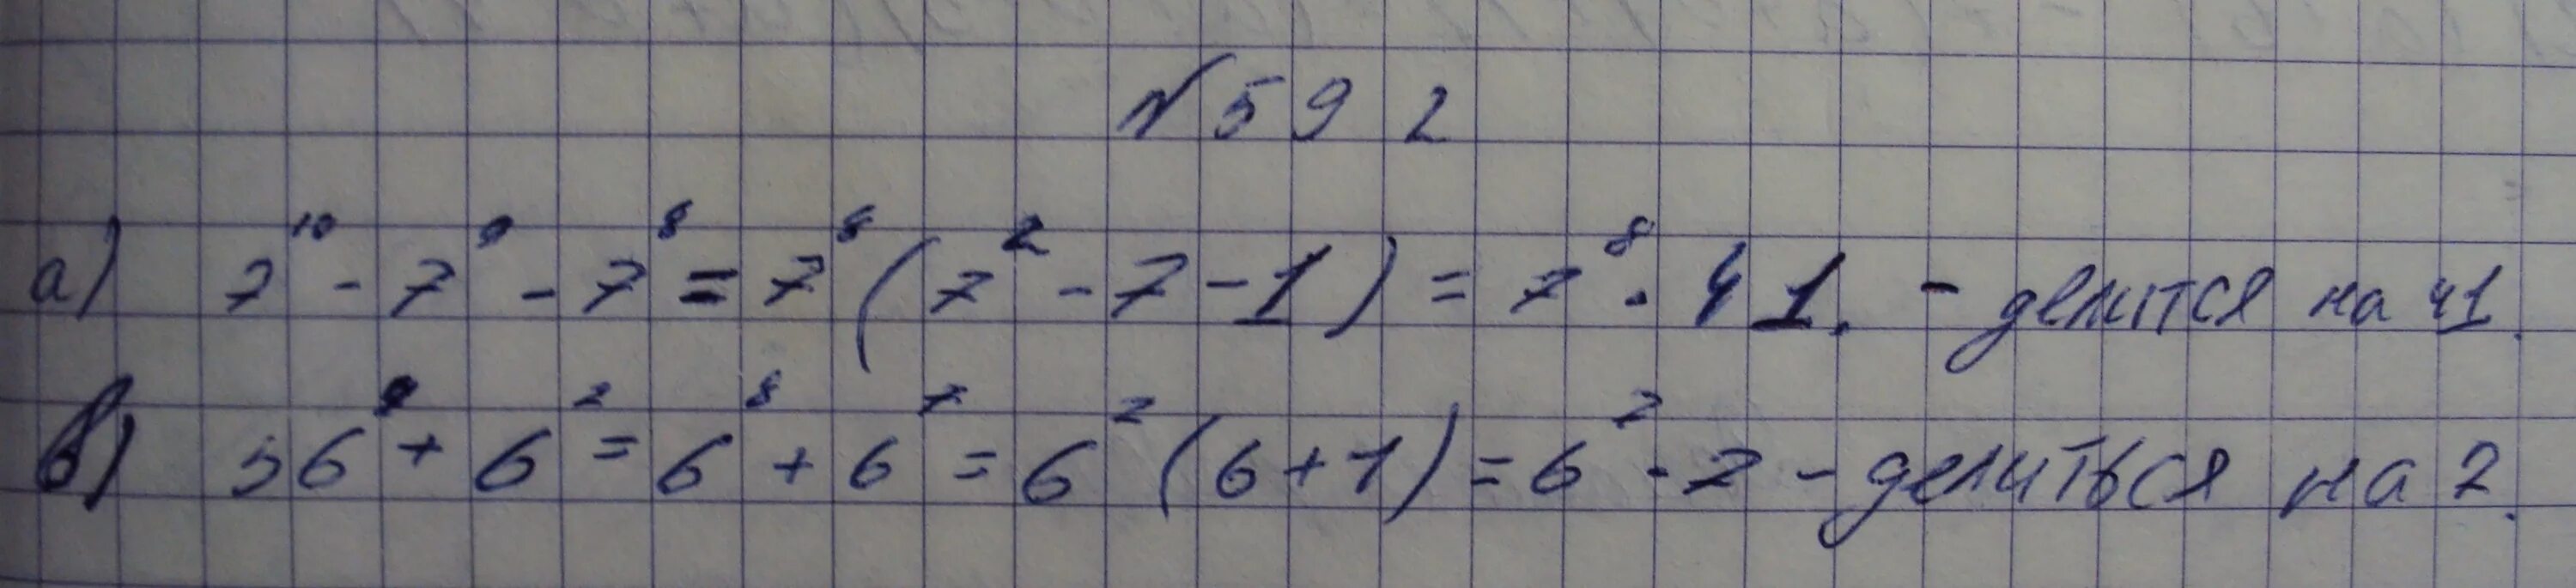 № 592
а) 7¹⁰ - 7⁹ - 7⁸ = 7⁸ (7² - 7 - 1) = 7⁸ · 41. - делится на 41.
в) 36⁹ + 6⁷ = 6⁸ + 6⁷ = 6⁷ (6 + 1) = 6⁷ · 7 - делиться на 7.